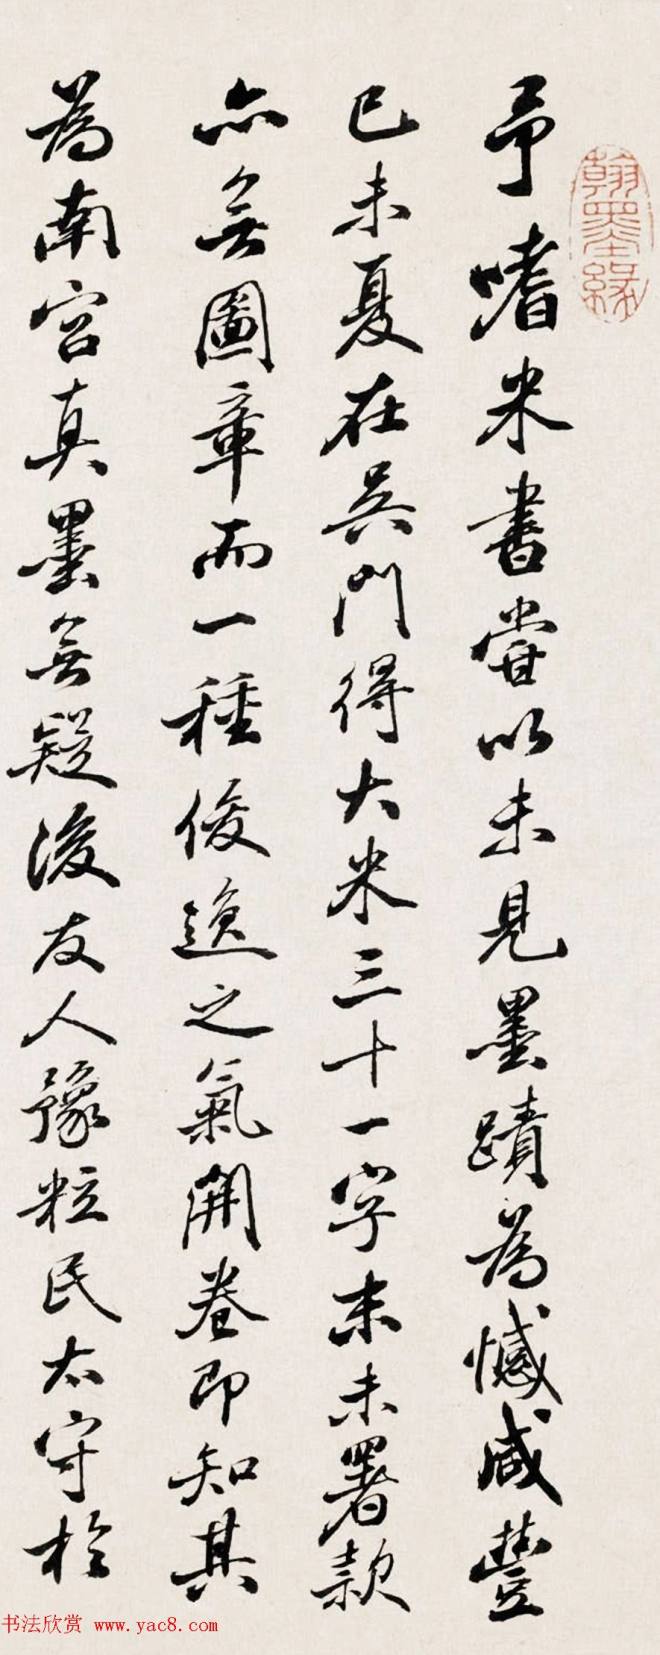 翰墨緣
予嗜米書嘗以未見墨蹟為憾咸豐
己未夏在吳門得大米三十一字末未署款
亦無圖章而一種俊逸之氣開卷即知其
為南宮真墨無疑後友人豫粒民太守於
书法欣赏 www.yac8.com